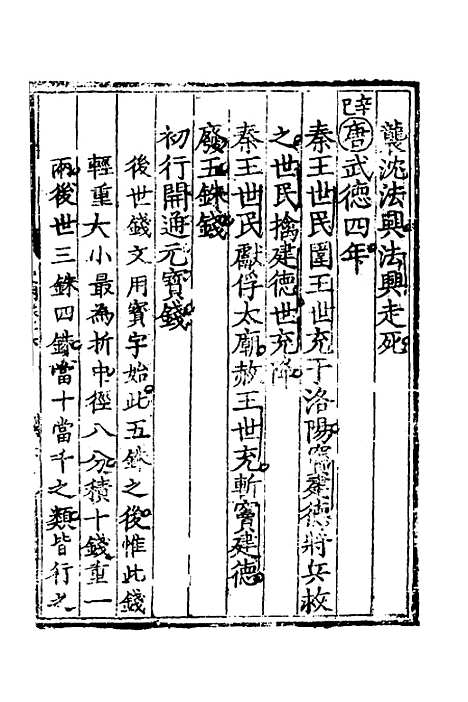 襲沈法興法興走死
辛巳唐武德四年
秦王世民圍王世充于洛陽竇建德將兵救
之世民擒建德世充降
秦王世民獻俘太廟赦王世充斬竇建德
廢五銖錢
初行開通元寶錢
後世錢文用寶字始此五銖之後惟此錢
輕重大小最為折中徑八分積十錢重一
兩後世三銖四銖當十當千之類皆行之